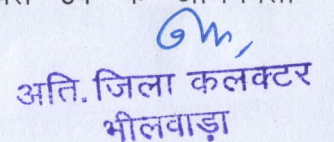 अति. जिला कलक्टर
भीलवाड़ा